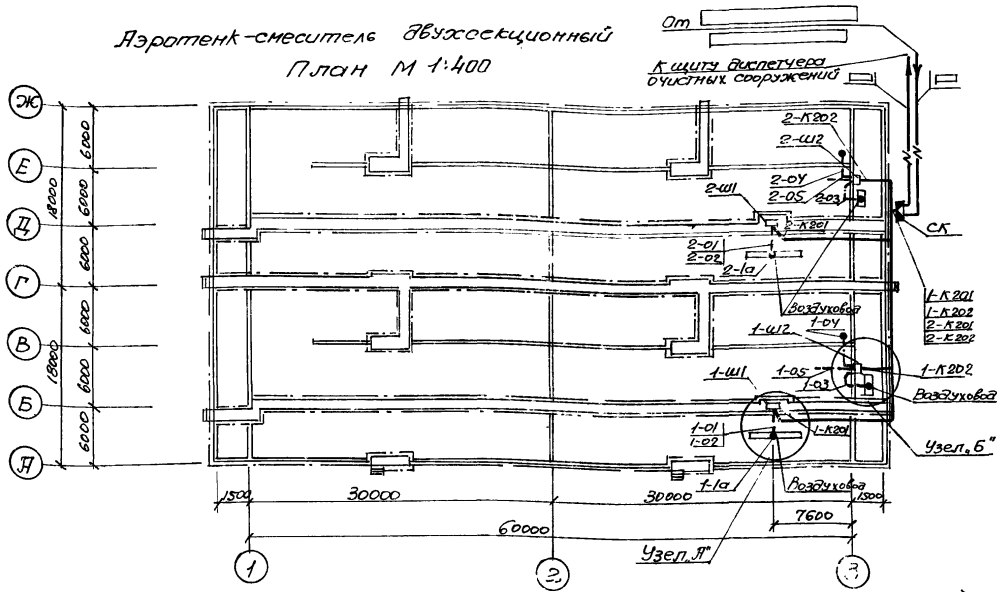 Аэротенк-смеситель двухсекционный
План М 1:400
От
К щиту диспетчера
очистных сооружений
Ж
Е
Д
Г
В
Б
А
6000
6000
6000
6000
6000
6000
18000
18000
2-К202
2-Ш2
2-04
2-05
2-03
2-Ш1
2-К201
2-01
2-02
2-1а
Воздуховод
СК
1-К201
1-К202
2-К201
2-К202
1-04
1-Ш2
1-05
1-03
1-К202
Воздуховод
1-Ш1
1-01
1-02
1-К201
1-1а
Воздуховод
Узел „Б"
Узел „А"
1500
30000
30000
1500
7600
60000
1
2
3